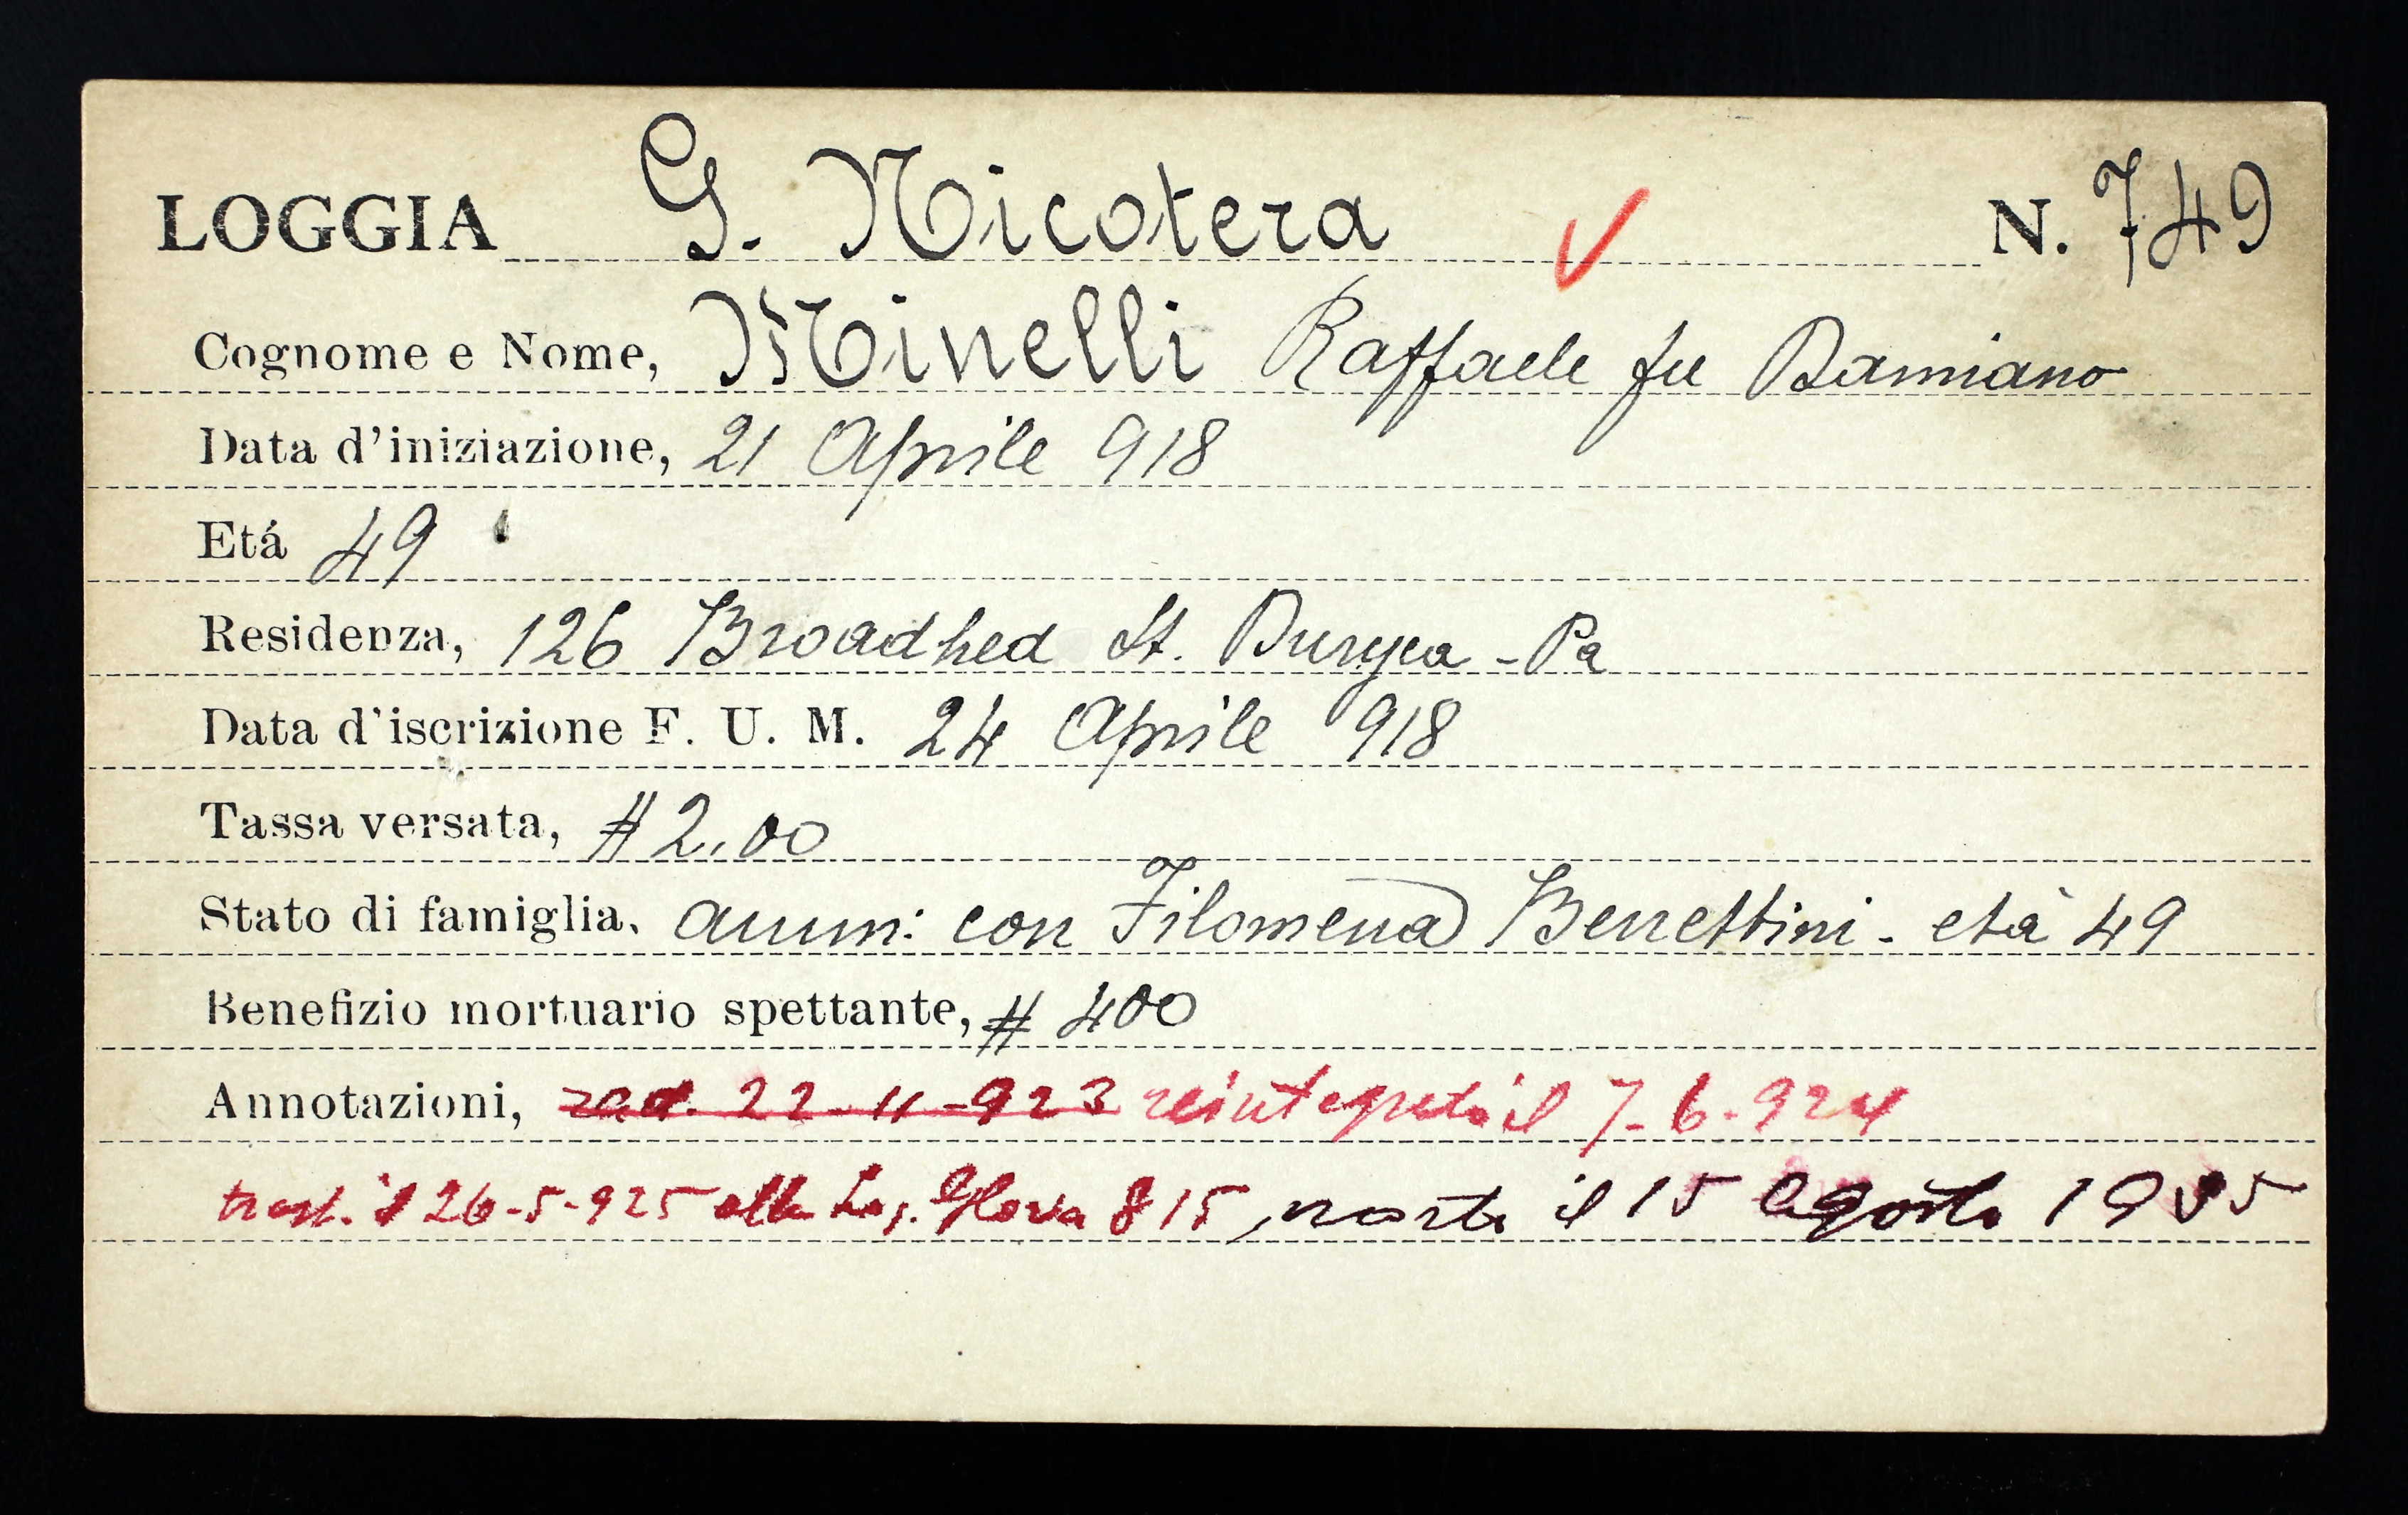 LOGGIA G. Nicotera N. 749
Cognome e Nome, Minelli Raffaele fu Damiano
Data d'iniziazione, 21 Aprile 918
Etá 49
Residenza, 126 Broadhed St. Duryea - Pa
Data d'iscrizione F. U. M. 24 Aprile 918
Tassa versata, $2.00
Stato di famiglia, amm: con Filomena Benettini - età 49
Benefizio mortuario spettante, $ 400
Annotazioni, rad. 22-11-923 reintegrato il 7-6-924
trasf. il 26-5-925 alla Log. 815, morto il 15 Agosto